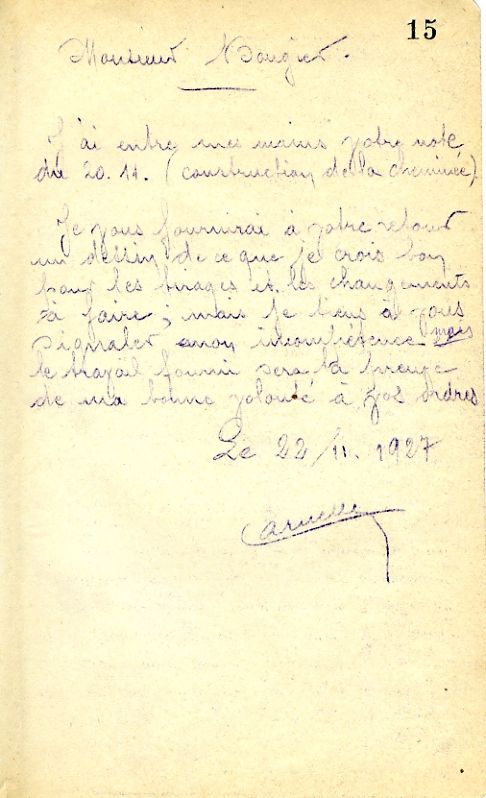 15
Monsieur Nougier.
J'ai entre mes mains votre note
du 20.11. (construction de la cheminée)
Je vous fournirai à votre retour
un dessin de ce que je crois bon
pour les tirages et les changements
à faire ; mais je tiens à vous
signaler mon incompétence mais
le travail fourni sera la preuve
de ma bonne volonté à vos ordres
Le 22/11. 1927